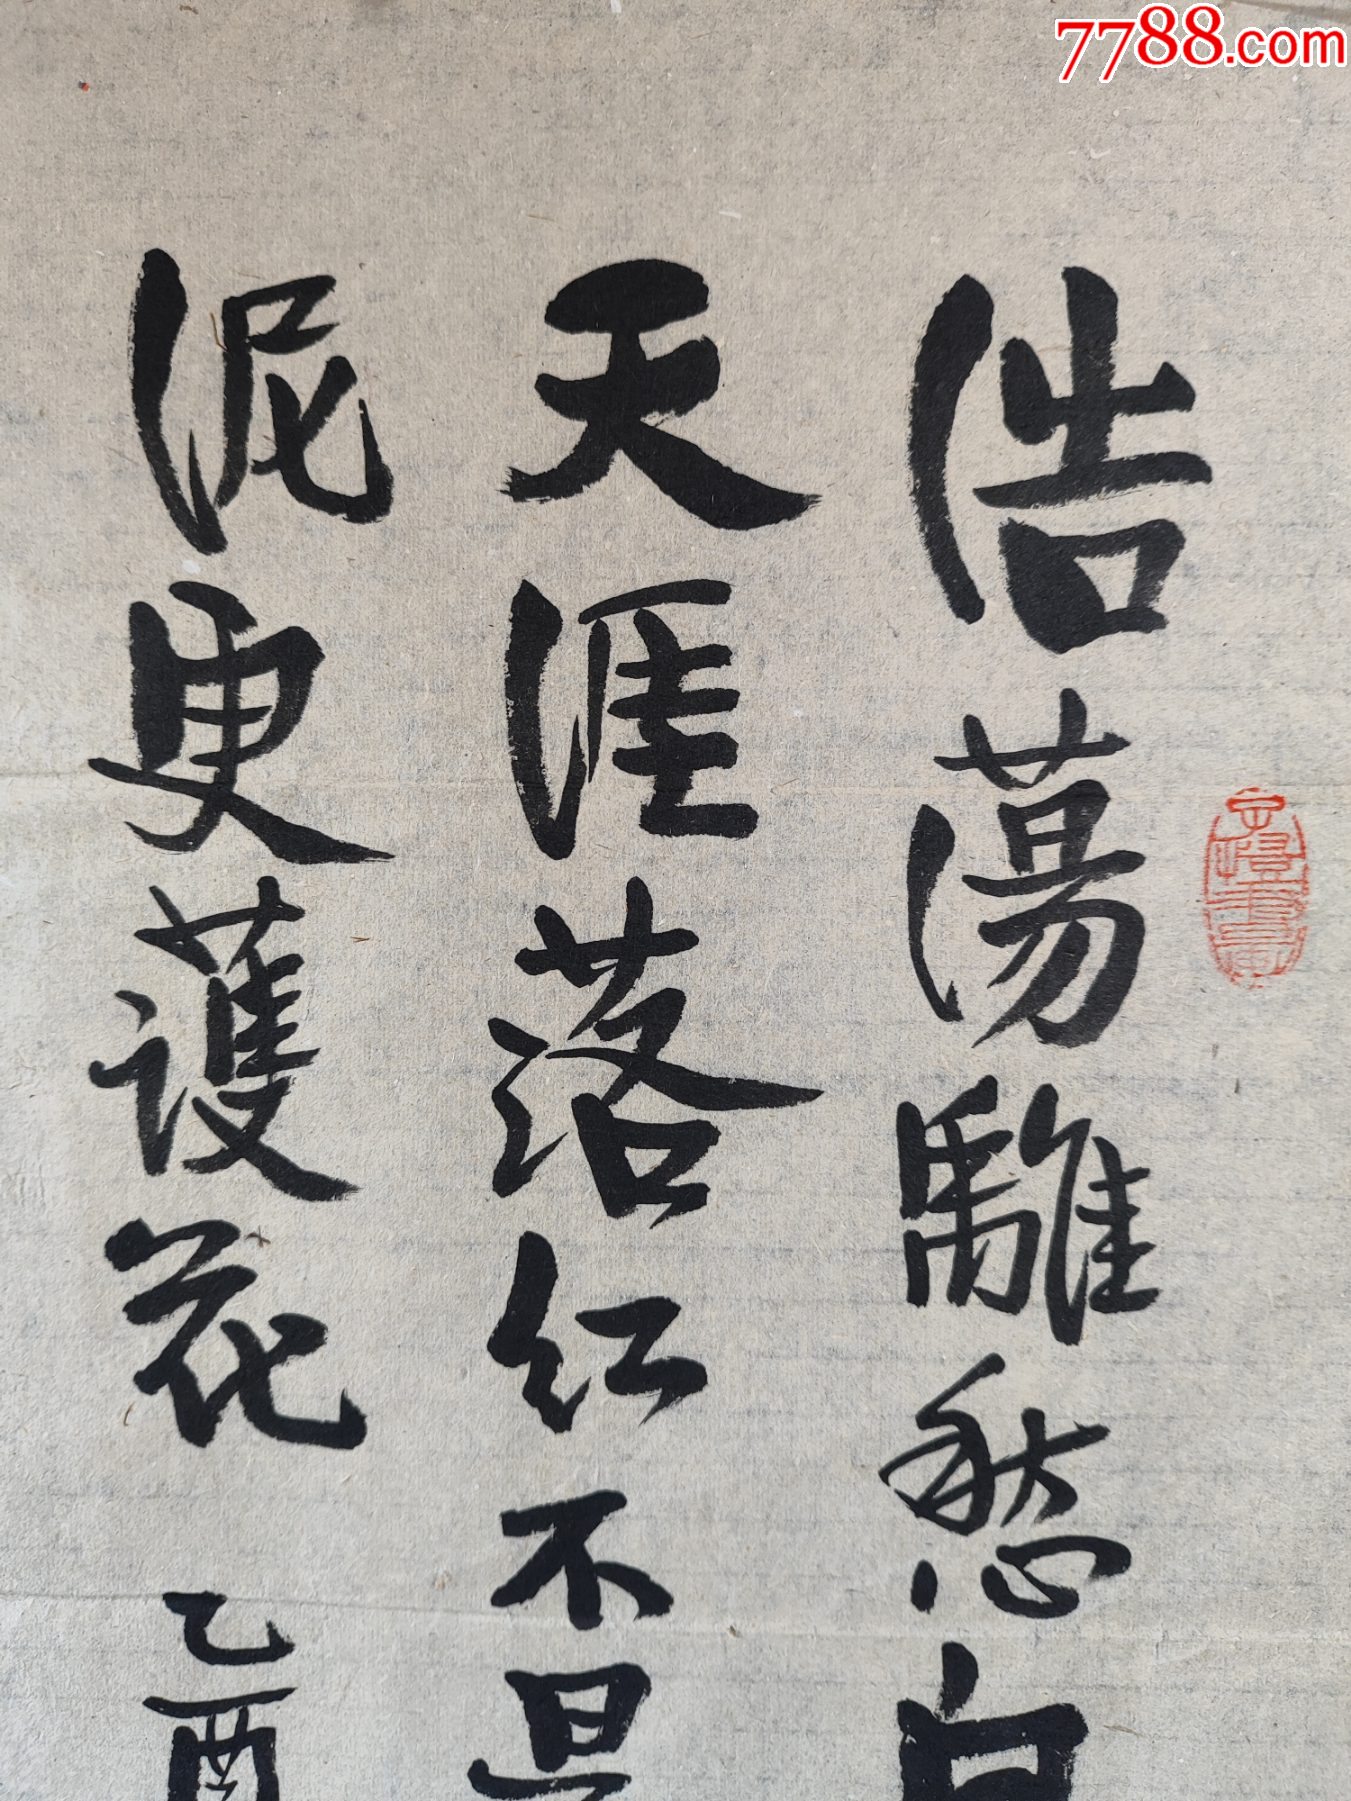 7788.com
浩蕩離愁白
天涯落红不是
泥更護花 乙酉